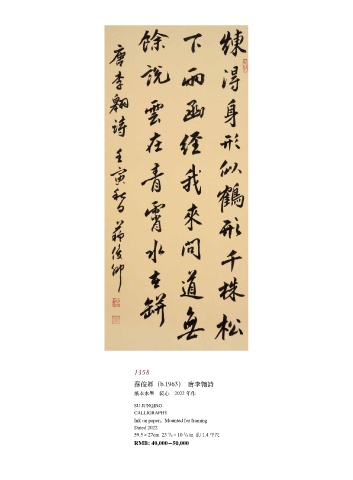 練得身形似鶴形千株松
下兩函經我來問道無
餘說雲在青霄水在缾
唐李翱詩 壬寅秋日 蘇俊卿
1358
蘇俊卿 (b.1963) 唐李翱詩
水墨紙本 鏡心 2022年作
SU JUNQING
CALLIGRAPHY
Ink on paper, Mounted for framing
Dated 2022
RMB: 40,000–50,000